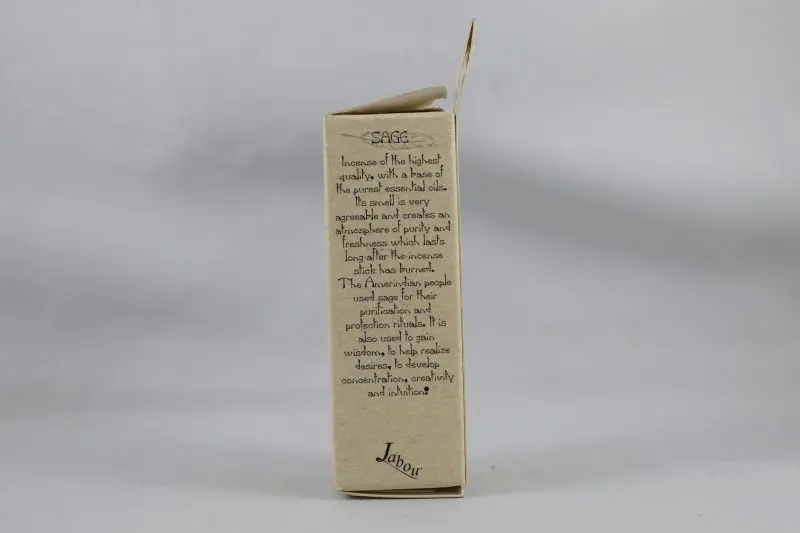 SAGE
Incense of the highest
quality, with a base of
the purest essential oils.
It's smell is very
agreeable and creates an
atmosphere of purity and
freshness which lasts
long after the incense
stick has burned.
The Amerindian people
used sage for their
purification and
protection rituals. It is
also used to gain
wisdom, to help realize
desires, to develop
concentration, creativity
and intuition.
Jabou